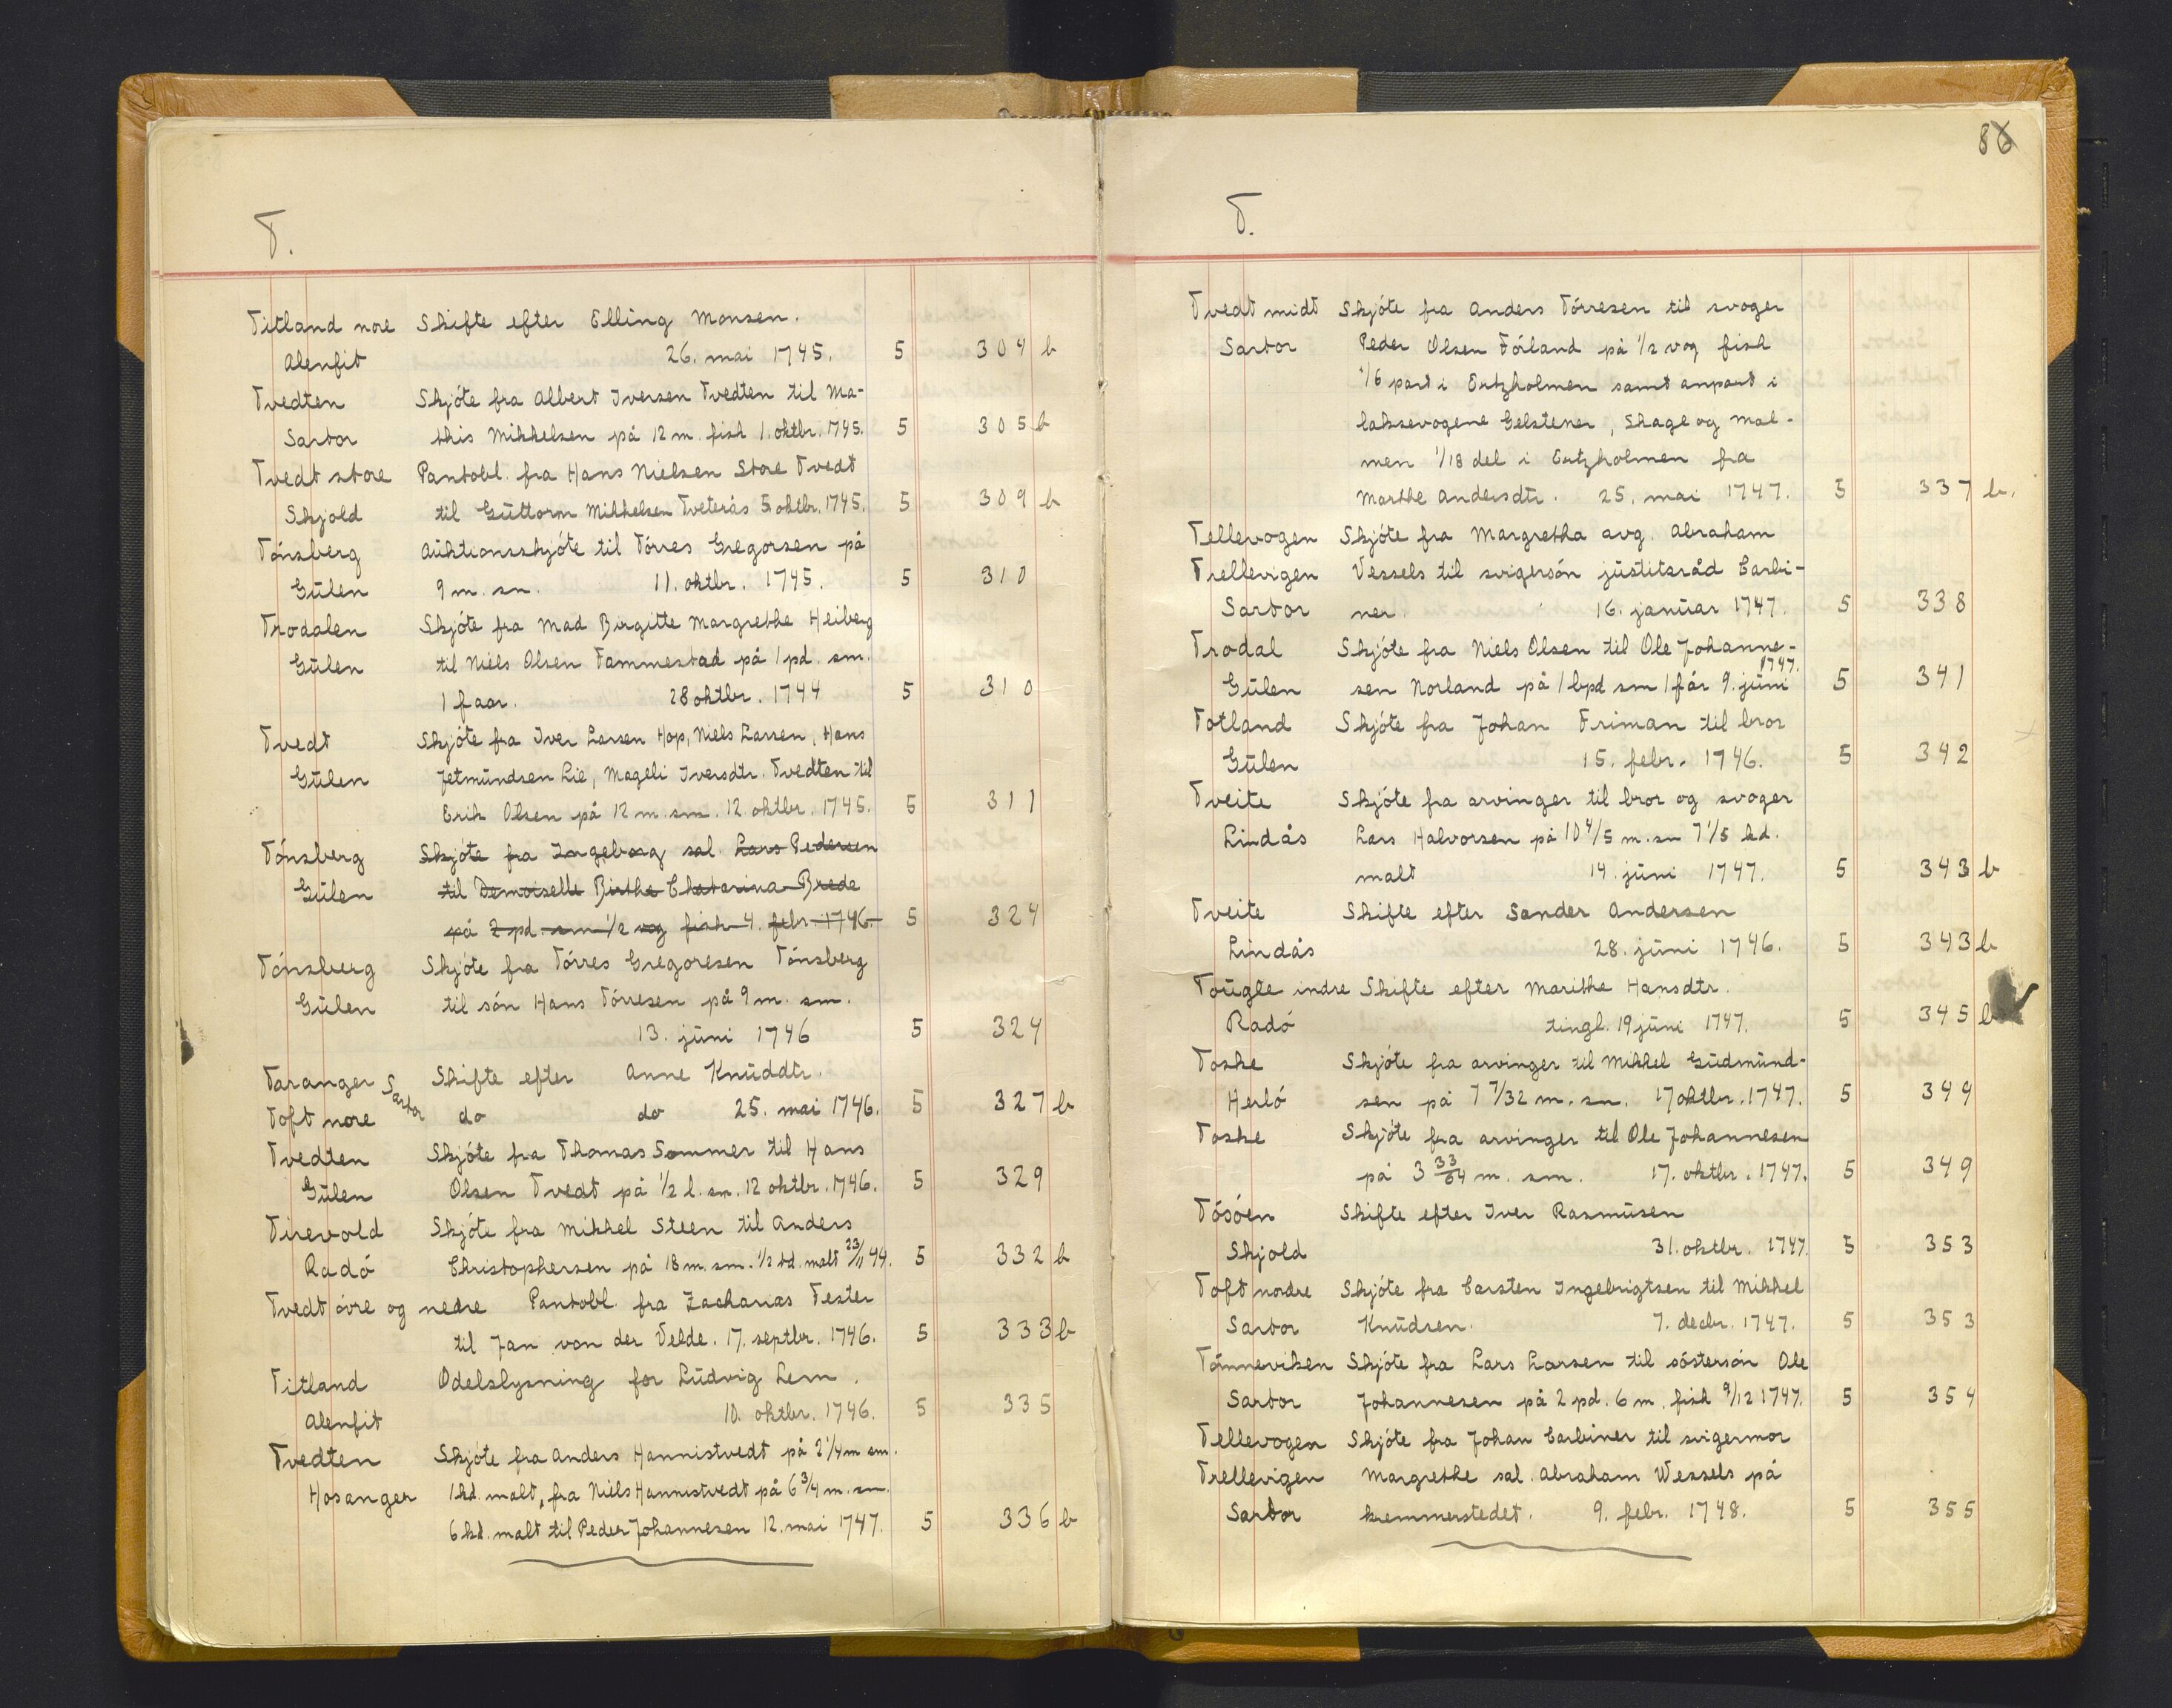 T.
Titland nore Skifte efter Elling Monsen.
Alenfit 26. mai 1745. 5 304 b
Tvedten Skjóte fra Albert Iversen Tvedten til Ma-
Sartor this Mikkelsen på 12 m. fisk 1. oktbr. 1745. 5 305 b
Tvedt store Pantobl. fra Hans Nielsen Store Tvedt
Skjold til Guttorm Mikkelsen Tveterås 5 oktbr. 1745. 5 309 b
Tónsberg Auktionsskjóte til Tórres Gregorsen på
Gulen 9 m. sm. 11. oktbr. 1745. 5 310
Trodalen Skjóte fra Mad Birgitte Margrethe Heiberg
Gulen til Niels Olsen Fammestad på 1 pd. sm.
1 faar. 28 oktbr. 1744 5 310
Tvedt Skjóte fra Iver Larsen Hop, Niels Larsen, Hans
Gulen Jetmundsen Lie, Mageli Iversdtr. Tvedten til
Erik Olsen på 12 m. sm. 12. oktbr. 1745. 5 311
Tónsberg Skjóte fra Ingeborg sal. Lars Pedersen
Gulen til Demoiselle Birthe Chatarina Brede
på 2 pd. sm 1/2 vog fisk 4. febr. 1746 5 324
Tónsberg Skjóte fra Tórres Gregoresen Tónsberg
Gulen til són Hans Tórresen på 9 m. sm.
13. juni 1746 5 324
Taranger Sartor Skifte efter Anne Knuddtr.
Toft nore do do 25. mai 1746. 5 327 b
Tvedten Skjóte fra Thomas Sommer til Hans
Gulen Olsen Tvedt på 1/2 l. sm. 12 oktbr. 1746. 5 329
Tirevold Skjóte fra Mikkel Steen til Anders
Radó Christophersen på 18 m. sm. 1/2 td. malt 23/11 44. 5 332 b
Tvedt óvre og nedre Pantobl. fra Zacharias Tester
til Jan von der Velde. 17. septbr. 1746. 5 333 b
Titland Odelslysning for Ludvig Lem.
Alenfit 10. oktbr. 1746. 5 335
Tvedten Skjóte fra Anders Hannistvedt på 2 1/4 m sm.
Hosanger 1 kd. malt, fra Niels Hannistvedt på 6 3/4 m. sm.
6 kd. malt til Peder Johannesen 12. mai 1747. 5 336 b
86
T.
Tvedt midt Skjóte fra Anders Tórresen til svoger
Sartor Peder Olsen Fórland på 1/2 vog fisk
1/6 part i Ertzholmen samt anpart i
laksevogene Gelstener, Skage og Mal-
men 1/18 del i Ertzholmen fra
Marthe Andersdtr. 25. mai 1747. 5 337 b.
Tellevogen Skjóte fra Margretha avg. Abraham
Trellevigen Vessels til svigersón justitsråd Carbi-
Sartor ner. 16. januar 1747. 5 338
Trodal Skjóte fra Niels Olsen til Ole Johanne-
Gulen sen Norland på 1 bpd sm 1 får 9. juni 1747. 5 341
Totland Skjóte fra Johan Friman til bror
Gulen 15. febr. 1746. 5 342
Tveite Skjóte fra arvinger til bror og svoger
Lindås Lars Halvorsen på 10 4/5 m. sm 7 1/5 kd.
malt 14. juni 1747. 5 343 b
Tveite Skifte efter Sander Andersen
Lindås 28. juni 1746. 5 343 b
Tougle indre Skifte efter Marithe Hansdtr.
Radó tingl. 19 juni 1747. 5 345 b
Toske Skjóte fra arvinger til Mikkel Gudmund-
Herló sen på 7 7/32 m. sm. 17 oktbr. 1747. 5 349
Toske Skjóte fra arvinger til Ole Johannesen
på 3 33/64 m. sm. 17. oktbr. 1747. 5 349
Tósóen Skifte efter Iver Rasmusen
Skjold 31. oktbr. 1747. 5 353
Toft nordre Skjóte fra Carsten Ingebrigtsen til Mikkel
Sartor Knudsen. 7. decbr. 1747. 5 353
Tónneviken Skjóte fra Lars Larsen til sóstersón Ole
Sartor Johannesen på 2 pd. 6 m. fisk 9/12 1747. 5 354
Tellevogen Skjóte fra Johan Carbiner til svigermor
Trellevigen Margrethe sal. Abraham Wessels på
Sartor kremmerstedet. 9. febr. 1748. 5 355